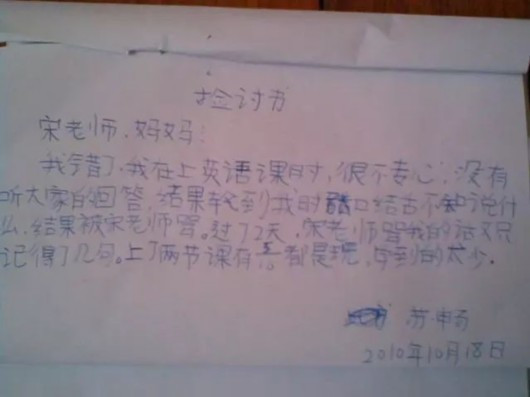 检讨书
宋老师，妈妈：
我错了，我在上英语课时，很不专心，没有
听大家的回答，结果轮到我时口结舌不知说什
么，结果被宋老师骂。过了2天，宋老师骂我的话又只
记得了几句。上了两节课有都是玩，的太少。
苏畅
2010年10月18日